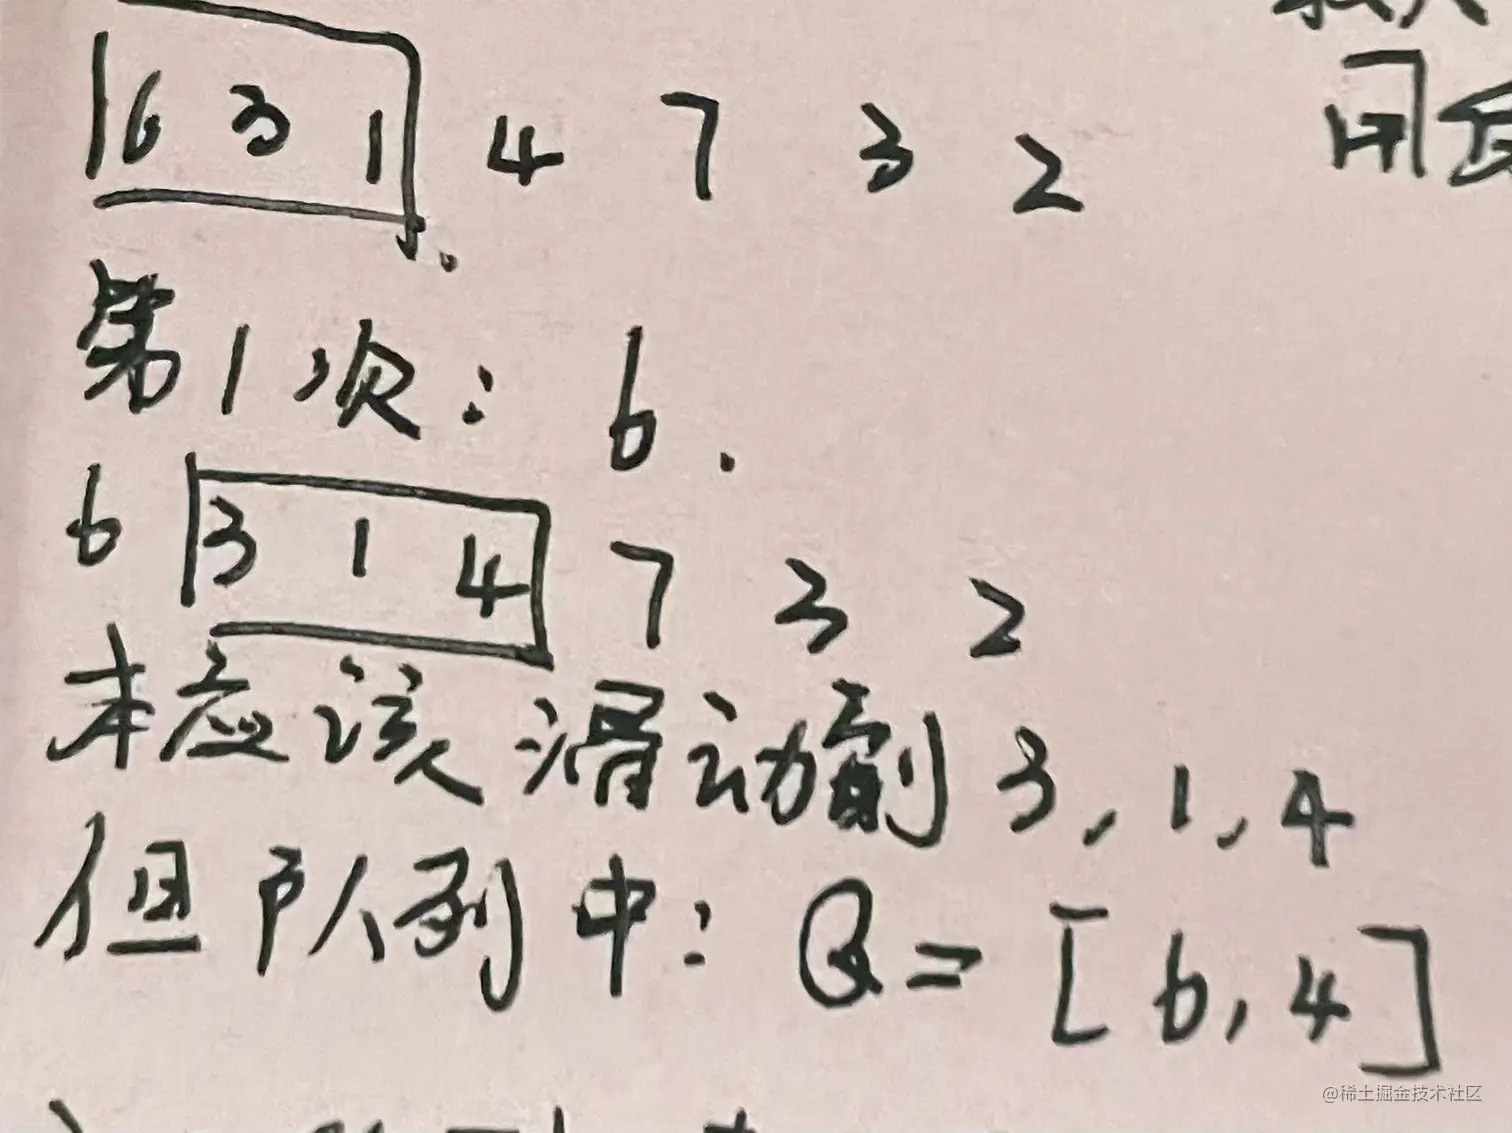 6 3 1 4 7 3 2
用
第1次: 6.
6 3 1 4 7 3 2
本应该滑动到 3, 1, 4
但队列中: Q = [6, 4]
@稀土掘金技术社区